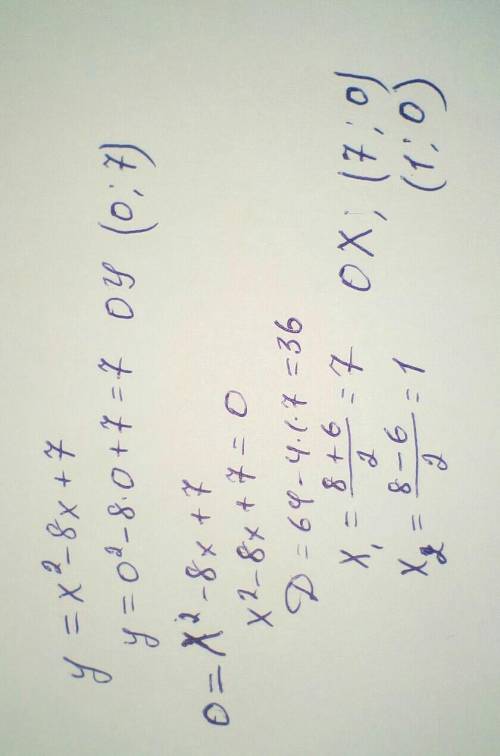 y = x² - 8x + 7
y = 0² - 8·0 + 7 = 7 OY (0; 7)
0 = x² - 8x + 7
x² - 8x + 7 = 0
D = 64 - 4·1·7 = 36
x₁ = (8 + 6)/2 = 7 OX; (7; 0)
x₂ = (8 - 6)/2 = 1 (1; 0)